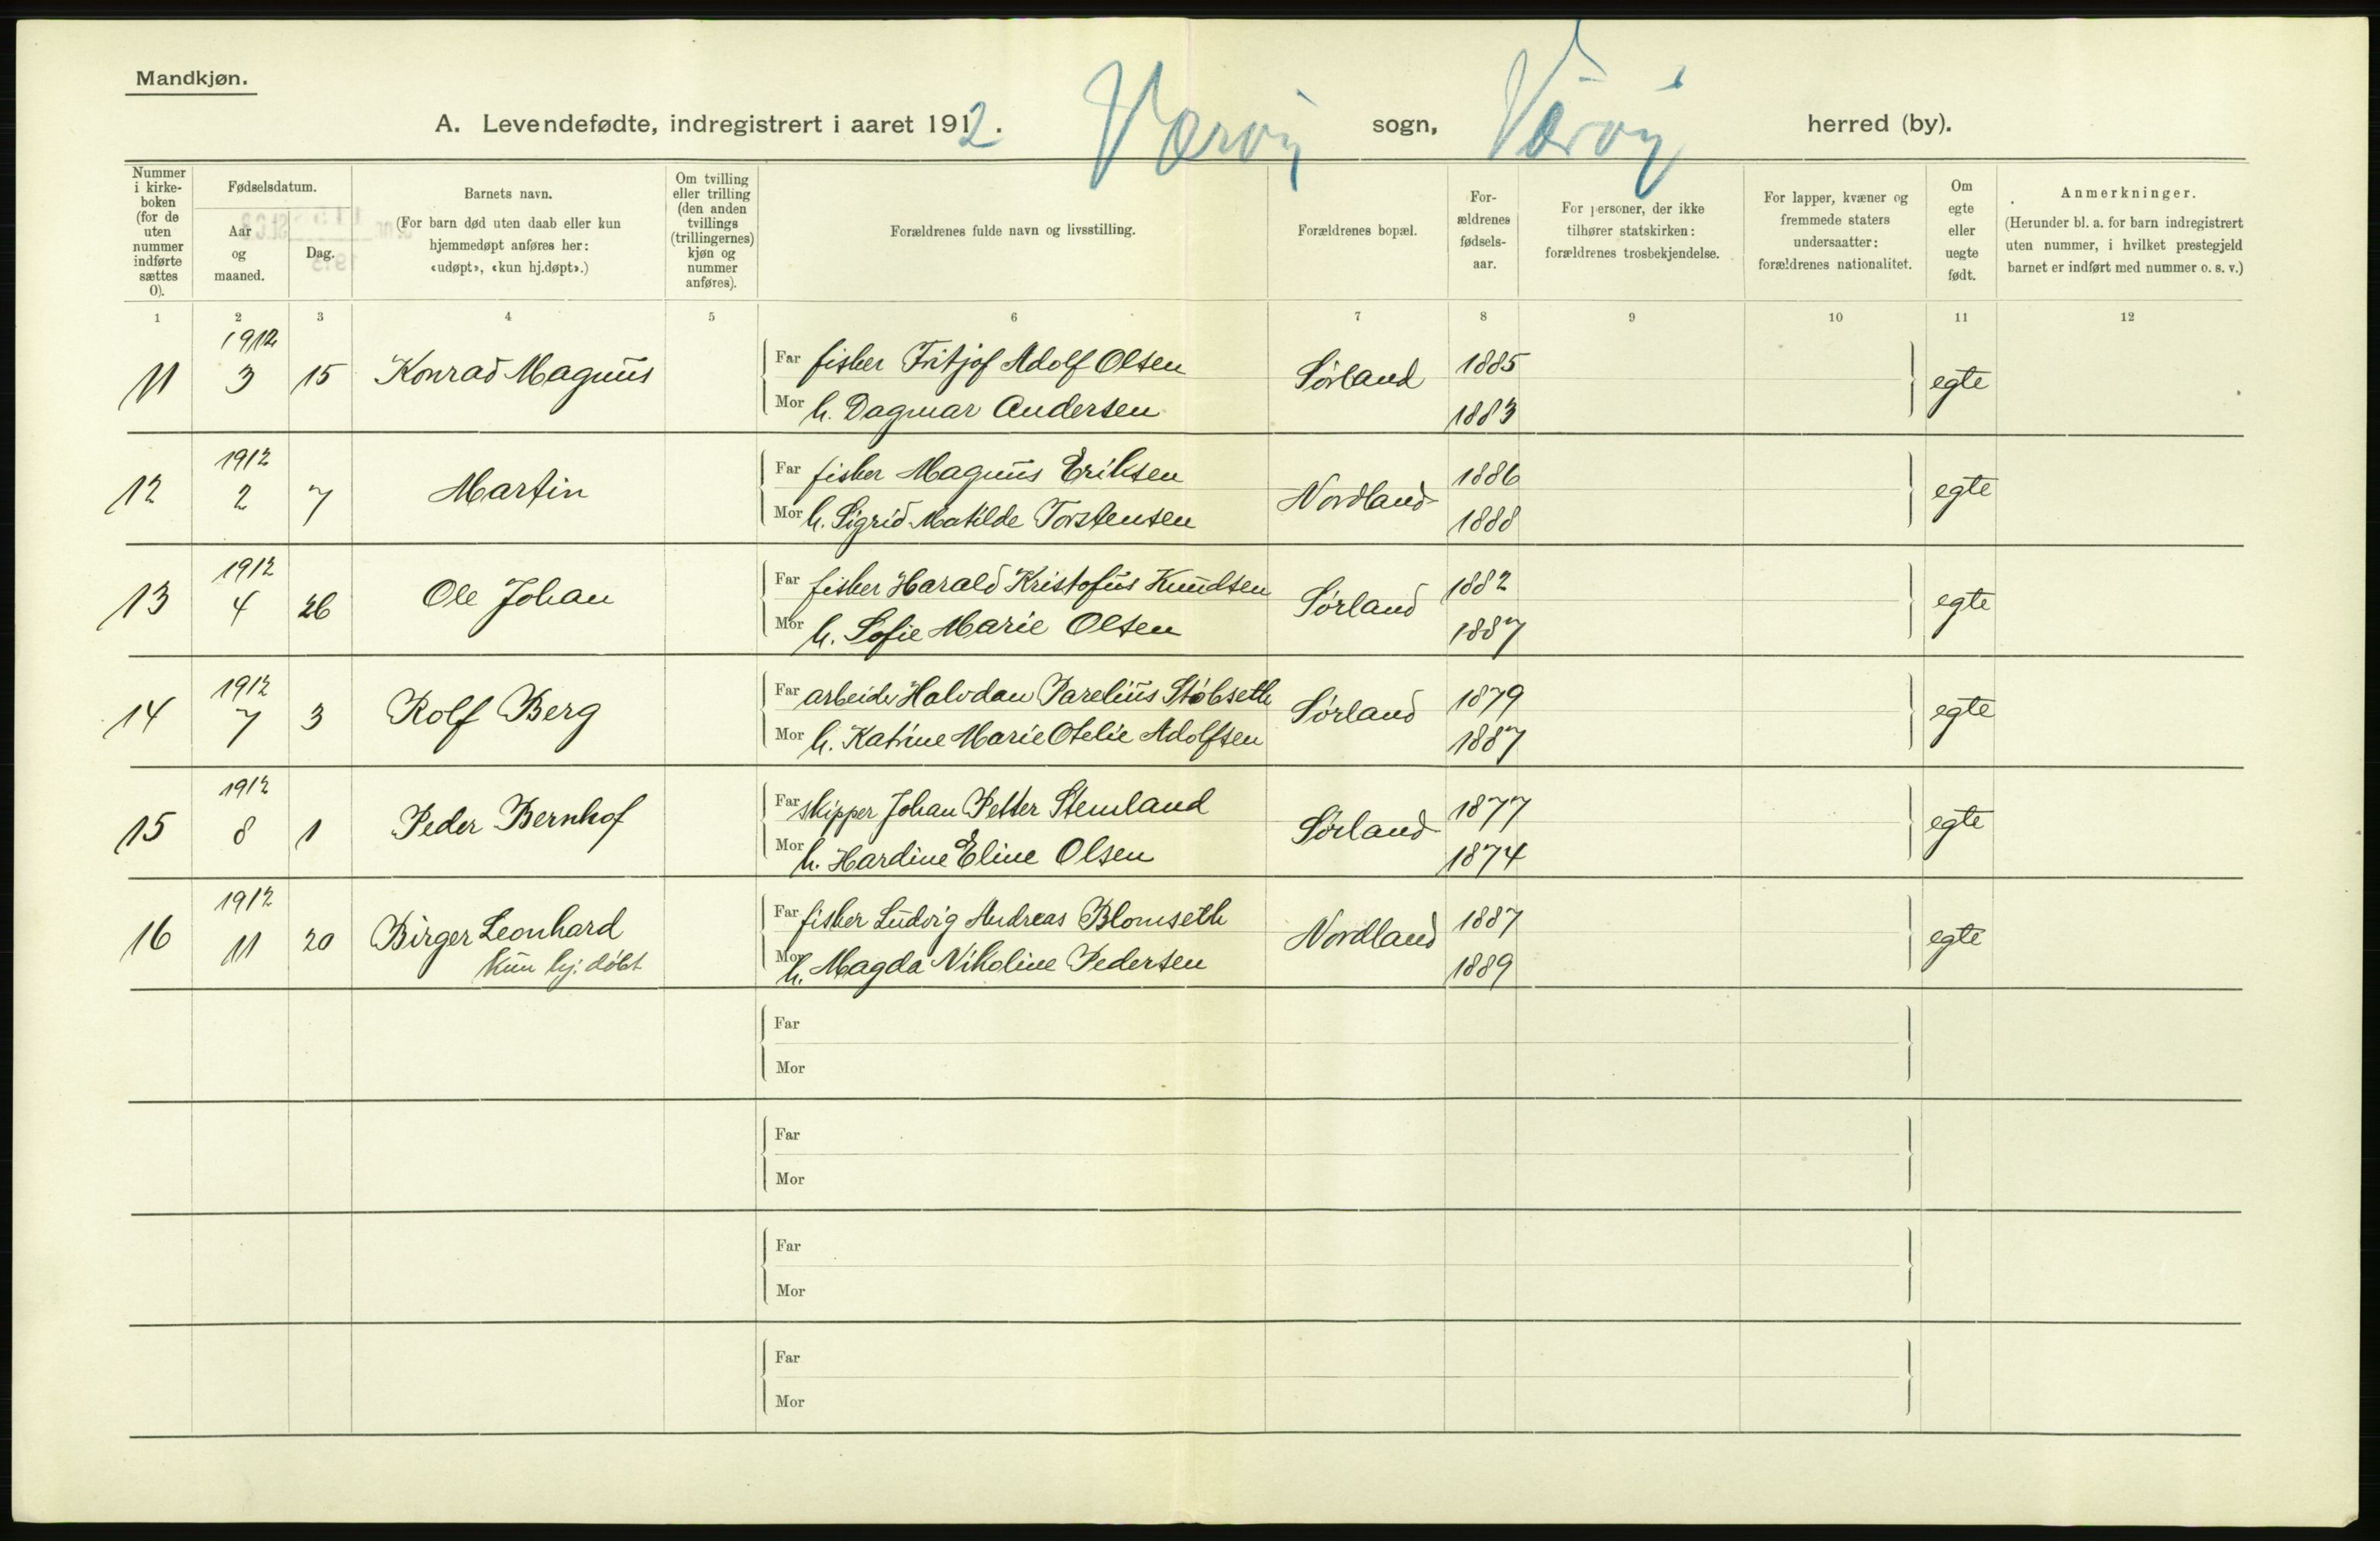 Mandkjøn.
A. Levendefødte, indregistrert i aaret 1912. Værøy sogn, Værøy herred (by).
Nummer i kirke-boken (for de uten nummer indførte sættes 0).
Fødselsdatum.
Aar og maaned.
Dag.
Barnets navn.
(For barn død uten daab eller kun hjemmedøpt anføres her: «udøpt», «kun hj.døpt».)
Om tvilling eller trilling (den anden tvillings (trillingernes) kjøn og nummer anføres).
Forældrenes fulde navn og livsstilling.
Forældrenes bopæl.
For-ældrenes fødsels-aar.
For personer, der ikke tilhører statskirken: forældrenes trosbekjendelse.
For lapper, kvæner og fremmede staters undersaatter: forældrenes nationalitet.
Om egte eller uegte født.
Anmerkninger.
(Herunder bl. a. for barn indregistrert uten nummer, i hvilket prestegjeld barnet er indført med nummer o. s. v.)
1 2 3 4 5 6 7 8 9 10 11 12
1912
11 3 15 Konrad Magnus Far fisker Fritjof Adolf Olsen Sørland 1885 egte
Mor h. Dagmar Andersen 1883
1912
12 2 7 Martin Far fisker Magnus Eriksen Nordland 1886 egte
Mor h. Sigrid Matilde Torstensen 1888
1912
13 4 26 Ole Johan Far fisker Harald Kristofus Knudsen Sørland 1882 egte
Mor h. Sofie Marie Olsen 1887
1912
14 7 3 Rolf Berg Far arbeider Halvdan Parelius Støbseth Sørland 1879 egte
Mor h. Katrine Marie Otelie Adolfsen 1887
1912
15 8 1 Peder Bernhof Far skipper Johan Petter Stemland Sørland 1877 egte
Mor h. Hardine Eline Olsen 1874
1912
16 11 20 Birger Leonhard Far fisker Ludvig Andreas Blomseth Nordland 1887 egte
kun hj. døbt Mor h. Magda Nikoline Pedersen 1889
Far
Mor
Far
Mor
Far
Mor
Far
Mor